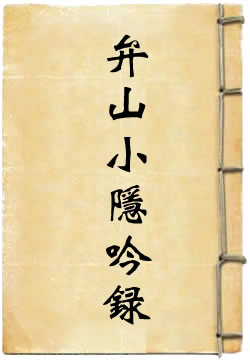 弁山小隱吟録